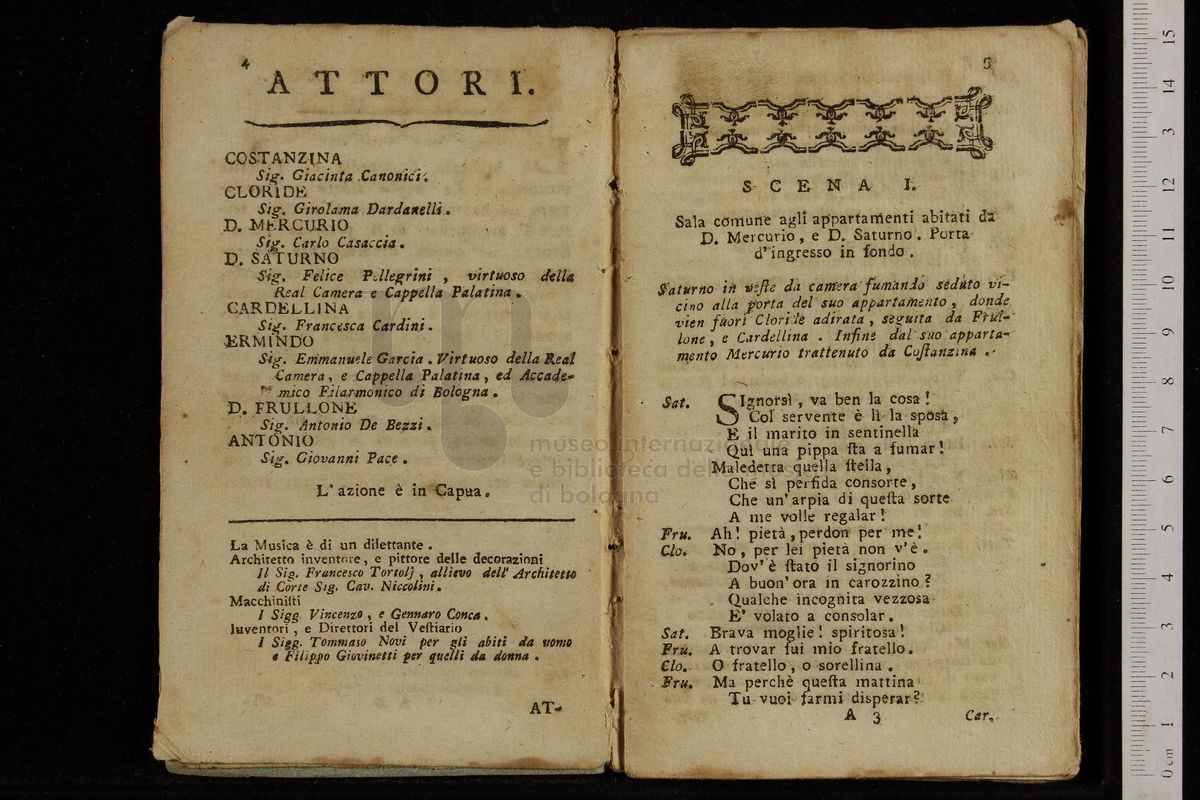 4
ATTORI.
COSTANZINA
Sig. Giacinta Canonici.
CLORIDE
Sig. Girolama Dardanelli.
D. MERCURIO
Sig. Carlo Casaccia.
D. SATURNO
Sig. Felice Pellegrini, virtuoso della
Real Camera e Cappella Palatina.
CARDELLINA
Sig. Francesca Cardini.
ERMINDO
Sig. Emmanuele Garcia. Virtuoso della Real
Camera, e Cappella Palatina, ed Accade-
mico Filarmonico di Bologna.
D. FRULLONE
Sig. Antonio De Bezzi.
ANTONIO
Sig. Giovanni Pace.
L'azione è in Capua.
La Musica è di un dilettante.
Architetto inventore, e pittore delle decorazioni
Il Sig. Francesco Tortolj, allievo dell' Architetto
di Corte Sig. Cav. Niccolini.
Macchinisti
I Sigg. Vincenzo, e Gennaro Conca.
Inventori, e Direttori del Vestiario
I Sigg. Tommaso Novi per gli abiti da uomo
e Filippo Giovinetti per quelli da donna.
AT-
5
SCENA I.
Sala comune agli appartamenti abitati da
D. Mercurio, e D. Saturno. Porta
d'ingresso in fondo.
Saturno in veste da camera fumando seduto vi-
cino alla porta del suo appartamento, donde
vien fuori Cloride adirata, seguita da Frul-
lone, e Cardellina. Infine dal suo apparta-
mento Mercurio trattenuto da Costanzina.
Sat. SIgnorsì, va ben la cosa!
Col servente è lì la sposa,
E il marito in sentinella
Quì una pippa sta a fumar!
Maledetta quella stella,
Che sì perfida consorte,
Che un'arpia di questa sorte
A me volle regalar!
Fru. Ah! pietà, perdon per me!
Clo. No, per lei pietà non v'è.
Dov'è stato il signorino
A buon' ora in carozzino?
Qualche incognita vezzosa
E' volato a consolar.
Sat. Brava moglie! spiritosa!
Fru. A trovar fui mio fratello.
Clo. O fratello, o sorellina.
Fru. Ma perchè questa mattina
Tu vuoi farmi disperar?
A 3 Car.
museo internazionale
e biblioteca della musica
di bologna
0 cm 1 2 3 4 5 6 7 8 9 10 11 12 13 14 15